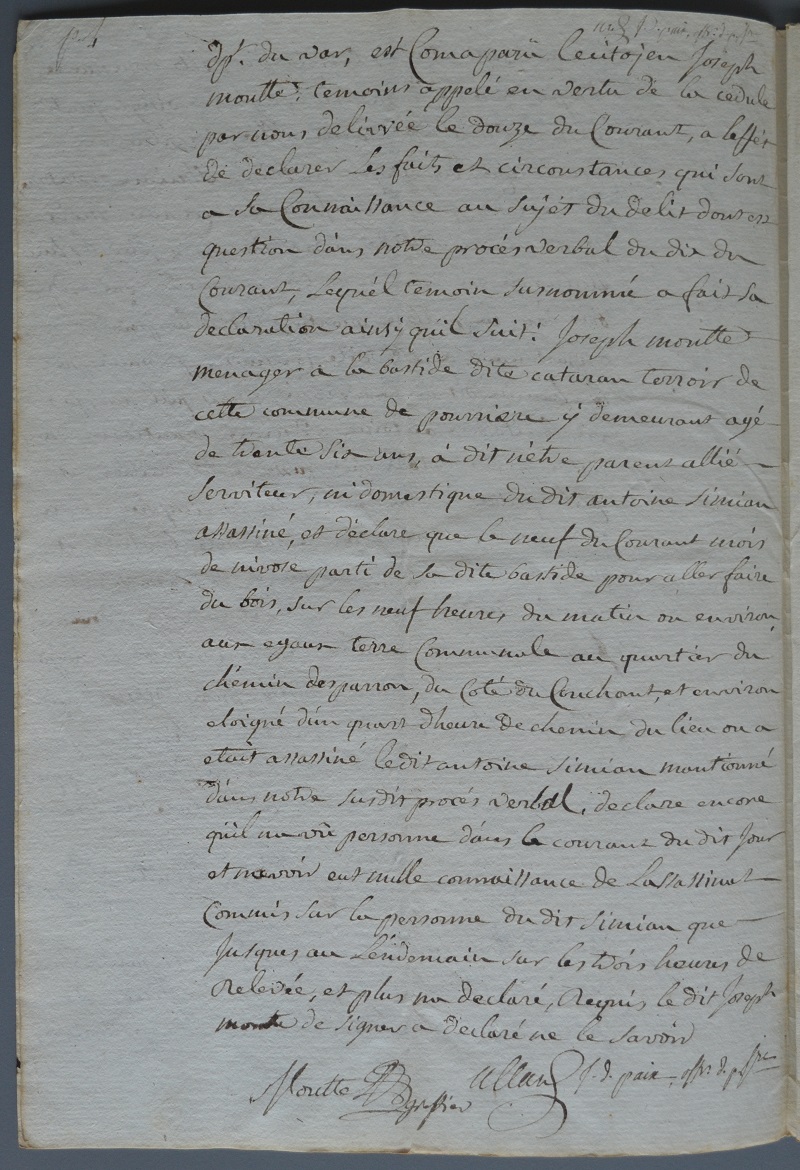 dpt. du var, est Comaparü le citoÿen Joseph
moutte, temoins appelé en vertu de la cédule
par nous delivrée le douze du Courant, a leffét
de declarer les faits et circonstances qui sont
a sa Connaissance au sujét du delit dont est
question dans notre procés verbal du dix du
Courant, Lequél temoin susnommé a fait sa
declaration ainsÿ quil suit: Joseph moutte
menager a la bastide dite cataran terroir de
cette commune de pourriere ÿ demeurant agé
de trente six ans, à dit n'étre parent allié
Serviteur, ni domestique du dit antoine Simian
assassiné, et déclare que le neuf du Courant mois
de nivose parti de sa dite bastide pour aller faire
du bois, sur les neuf heures du matin ou environ
aux egaux terre Communale au quartier du
chémin desparron, du Coté du Couchant, et environ
eloigné d'un quart dheure de chemin du lieu ou a
etait assassiné le dit antoine Simian mantionné
dans notre susdit procés verbal, declare encore
qu'il na vû personne dans le courant du dit Jour
et n'avoir eut nulle connaissance de Lassassinat
Commis sur la personne du dit Simian que
Jusques au Léndemain sur les trois heures de
Relevée, et plus na declaré, Requis le dit Joseph
moutte de signer a declaré ne le savoir
Moutte greffier allard J. d. paix, offr. d. pce